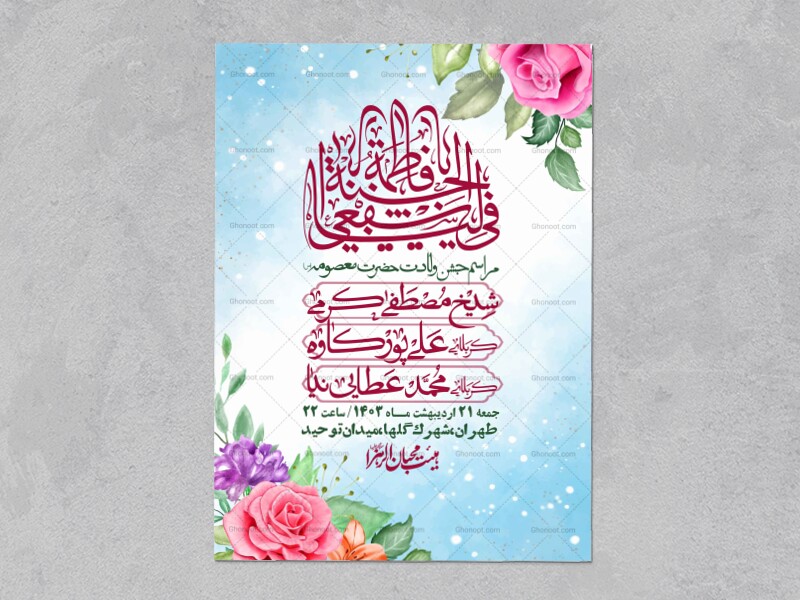 یا فاطمة اشفعی لی فی الجنة
مراسم جشن ولادت حضرت معصومه(س)
شیخ مصطفی کرمی
کربلایی علی پورکاوه
کربلایی محمد عطایی نیا
جمعه ۲۱ اردیبهشت مـاه ۱۴۰۳/ ساعت ۲۲
طهران،شهرک گلها،میدان توحید
هیئت محبان الزهرا
Ghonoot.com